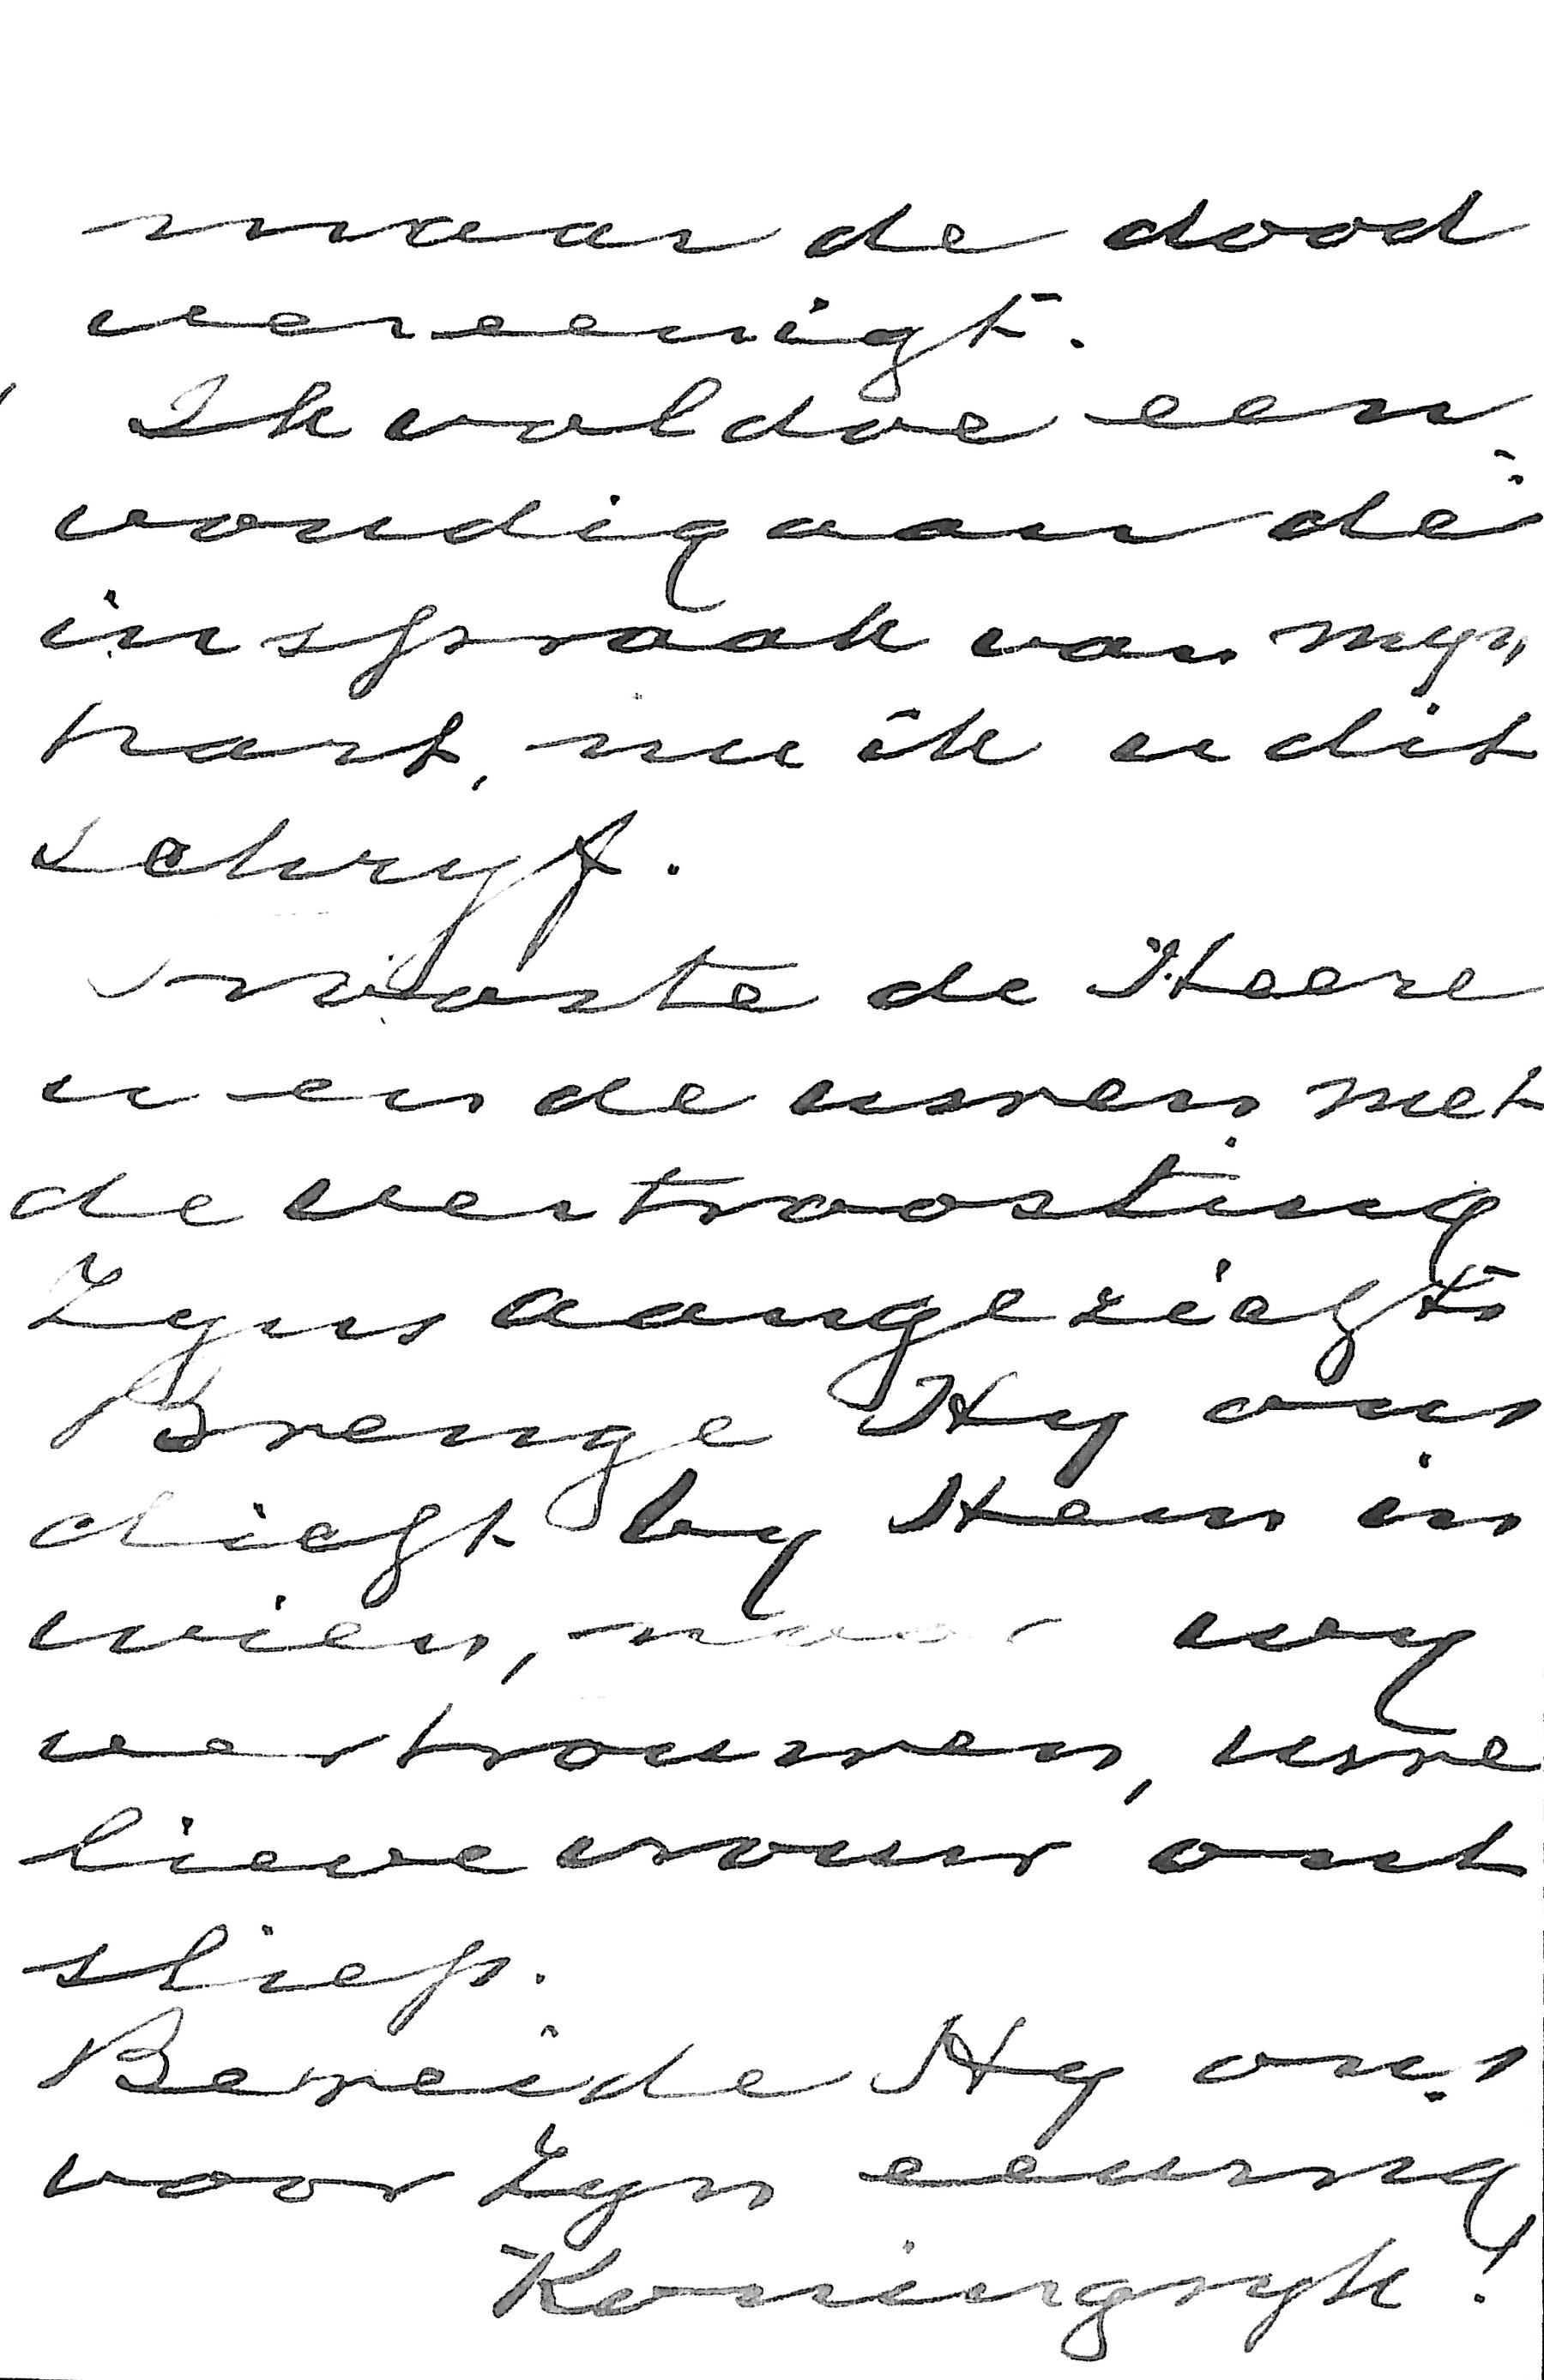 maar de dood
vereenigt.
Ik voldoe een
voudig aan de
inspraak van myn
hart, nu ik u dit
schryf.
Trooste de Heere
u en de uwen met
de vertroosting
Zyns aangezichts
Brenge Hy ons
dicht by Hem in
wien, naar wy
vertrouwen, uwe
lieve vrouw ont
sliep.
Bereide Hy ons
voor Zyn eeuwig
Koningryk!